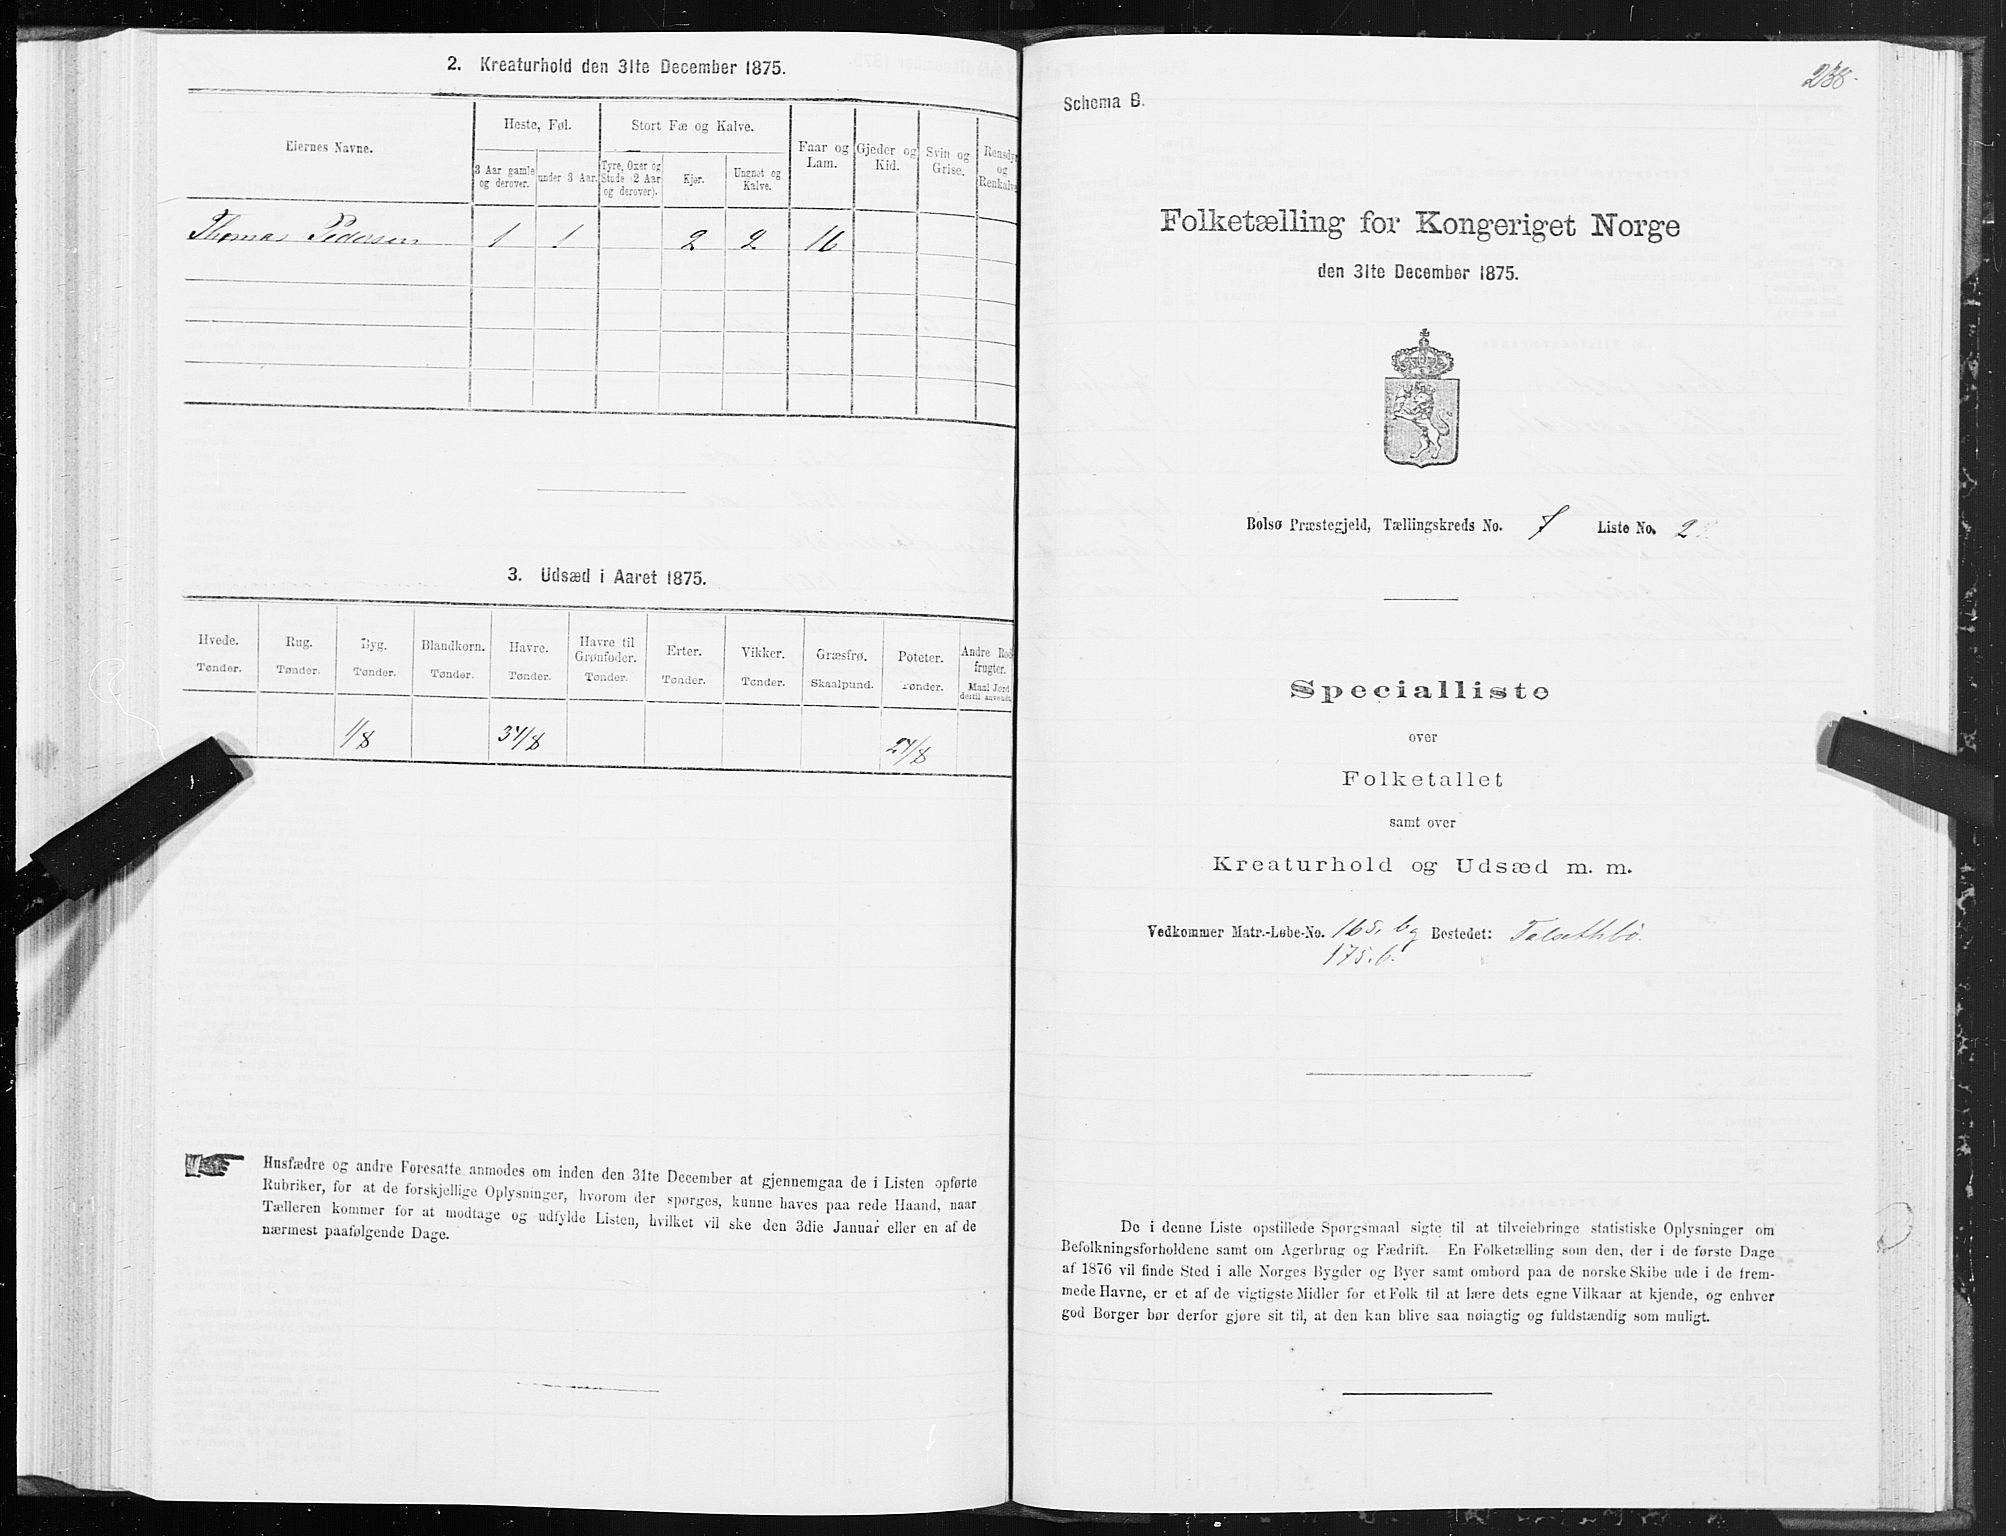 2. Kreaturhold den 31te December 1875.
Eiernes Navne.
Heste, Føl.
Stort Fæ og Kalve.
Faar og Lam.
Gjeder og Kid.
Svin og Grise.
Rensdyr og Renkalve
3 Aar gamle og derover.
under 3 Aar.
Tyre, Oxer og Stude (2 Aar og derover).
Kjør.
Ungnøt og Kalve.
Thomas Pedersen 1 1 2 2 16
3. Udsæd i Aaret 1875.
Hvede. Rug. Byg. Blandkorn. Havre. Havre til Grønfoder. Erter. Vikker. Græsfrø. Poteter. Andre Rodfrugter.
Tønder. Tønder. Tønder. Tønder. Tønder. Tønder. Tønder. Tønder. Skaalpund. Tønder. Maal Jord dertil anvendt.
1/8 3 4/8 2 4/8
Husfædre og andre Foresatte anmodes om inden den 31te December at gjennemgaa de i Listen opførte
Rubriker, for at de forskjellige Oplysninger, hvorom der spørges, kunne haves paa rede Haand, naar
Tælleren kommer for at modtage og udfylde Listen, hvilket vil ske den 3die Januar eller en af de
nærmest paafølgende Dage.
238.
Schema B.
Folketælling for Kongeriget Norge
den 31te December 1875.
Bolsø Præstegjeld, Tællingskreds No. 7 Liste No. 2
Specialliste
over
Folketallet
samt over
Kreaturhold og Udsæd m. m.
Vedkommer Matr.-Løbe-No. 165. b og Bostedet: Talsethbø.
175. b.
De i denne Liste opstillede Spørgsmaal sigte til at tilveiebringe statistiske Oplysninger om
Befolkningsforholdene samt om Agerbrug og Fædrift. En Folketælling som den, der i de første Dage
af 1876 vil finde Sted i alle Norges Bygder og Byer samt ombord paa de norske Skibe ude i de frem-
mede Havne, er et af de vigtigste Midler for et Folk til at lære dets egne Vilkaar at kjende, og enhver
god Borger bør derfor gjøre sit til, at den kan blive saa nøiagtig og fuldstændig som muligt.